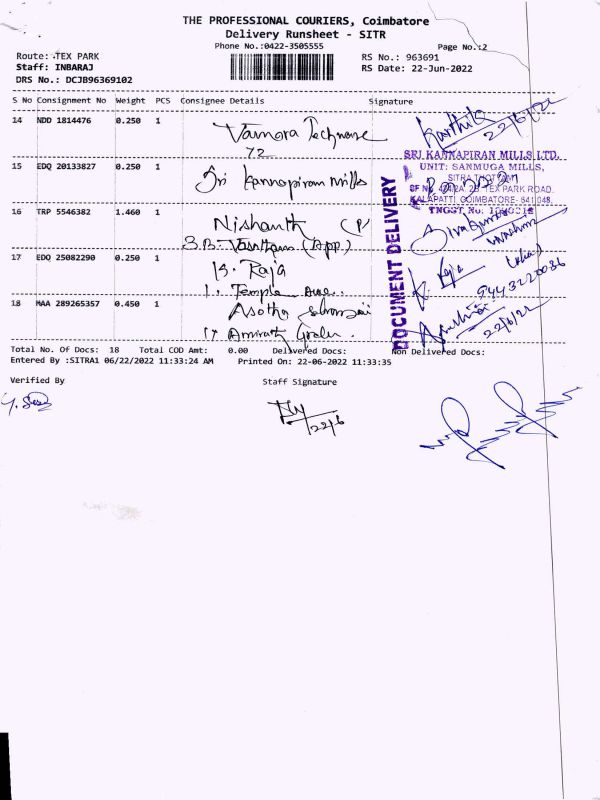 THE PROFESSIONAL COURIERS, Coimbatore
Delivery Runsheet - SITR
Phone No.:0422-3505555
Page No.:2
Route: TEX PARK
RS No.: 963691
Staff: INBARAJ
RS Date: 22-Jun-2022
DRS No.: DCJB96369102
S No Consignment No Weight PCS Consignee Details Signature
14 NDD 1814476 0.250 1
72
Karthik
22/6/22
SRI KANNAPIRAN MILLS LTD.
UNIT: SANMUGA MILLS,
TEX PARK ROAD.
KALAPATTI, COIMBATORE- 641 048.
TNGST. No:
15 EDQ 20133827 0.250 1
Sri Kannapiran mills
16 TRP 5546382 1.460 1
Nishanth (P)
3.B. (App.)
17 EDQ 25082290 0.250 1
B. Raja
1. Temple
K. Raja
9443220036
18 MAA 289265357 0.450 1
Asotha
17 Amirath
22/6/22
DOCUMENT DELIVERY
Total No. Of Docs: 18 Total COD Amt: 0.00 Delivered Docs: Non Delivered Docs:
Entered By :SITRA1 06/22/2022 11:33:24 AM Printed On: 22-06-2022 11:33:35
Verified By Staff Signature
22/6